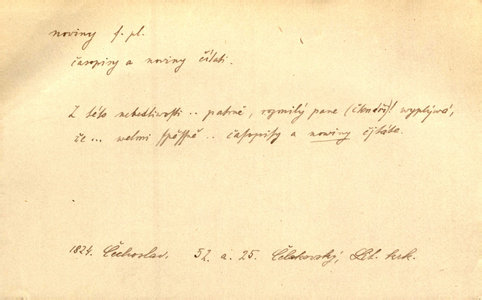 noviny f. pl.
časopisy a noviny čítati.
Z této nebedlivosti .. patrně, rozmilý pane (čtenáři)! wyplýwá,
že ... welmi spěšně .. časopisy a nowiny čjtáte.
1824. Čechoslav. 52. a. 25. Čelakovský, Lit. krk.